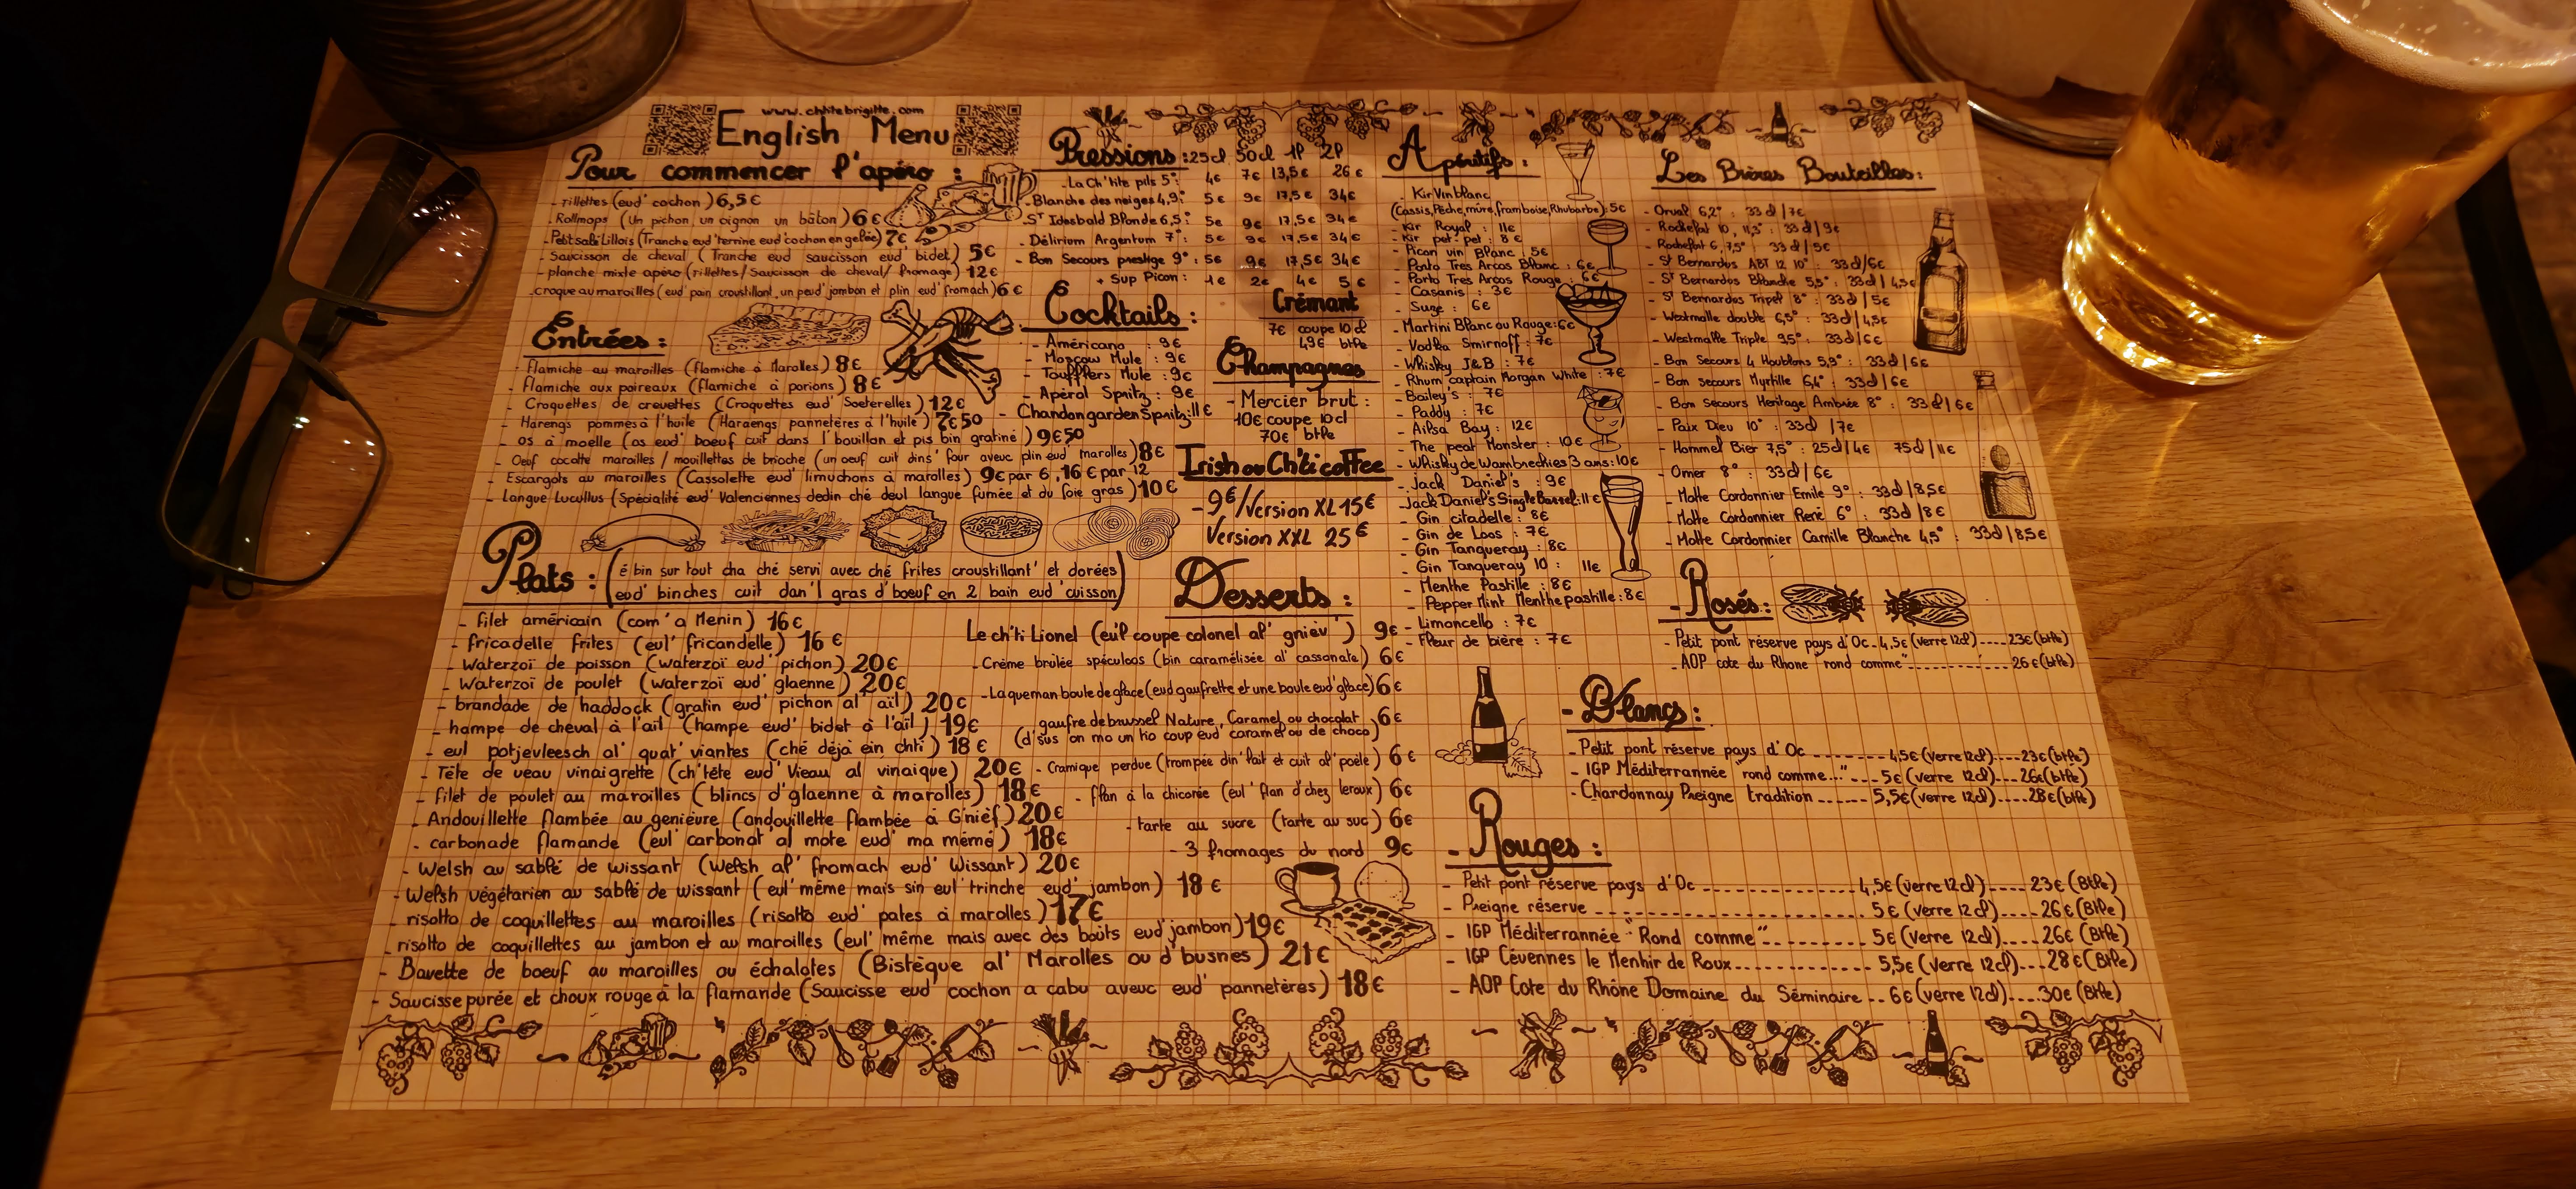 www.chtitebrigitte.com
English Menu
Pour commencer l'apéro :
- rillettes (eud' cochon) 6,5€
- Rollmops (Un pichon, un oignon un bâton) 6€
- Petit salé Lillois (Tranche eud' terrine eud' cochon en gelée) 7€
- Saucisson de cheval (Tranche eud' saucisson eud' bidet) 5€
- planche mixte apéro (rillettes / Saucisson de cheval / fromage) 12€
- croque au maroilles (eud' pain croustillant, un peud' jambon et plin eud' fromach) 6€
Entrées :
- flamiche au maroilles (flamiche à Marolles) 8€
- flamiche aux poireaux (flamiche à porions) 8€
- Croquettes de crevettes (Croquettes eud' Soeterelles) 12€
- Harengs pommes à l'huile (Haraengs pannetères à l'huile) 7€50
- os à moelle (os eud' boeuf cuit dans l'bouillon et pis bin gratiné) 9€50
- Oeuf cocotte maroilles / mouillettes de brioche (un oeuf cuit dins' four aveuc plin eud' marolles) 8€
- Escargots au maroilles (Cassolette eud' limuchons à marolles) 9€ par 6, 16€ par 12
- Langue Lucullus (Spécialité eud' Valenciennes dedin ché deul langue fumée et du foie gras) 10€
Plats :
(é bin sur tout cha ché servi avec ché frites croustillant' et dorées
eud' binches cuit dan'l gras d'boeuf en 2 bain eud' cuisson)
- filet américain (com' a Menin) 16€
- fricadelle frites (eul' fricandelle) 16€
- Waterzoï de poisson (waterzoï eud' pichon) 20€
- Waterzoï de poulet (waterzoï eud' glaenne) 20€
- brandade de haddock (gratin eud' pichon al' ail) 20€
- hampe de cheval à l'ail (hampe eud' bidet à l'ail) 19€
- eul potjevleesch al' quat' viantes (ché déjà ein chti) 18€
- Tête de veau vinaigrette (ch'tête eud' Vieau al vinaique) 20€
- filet de poulet au maroilles (blincs d'glaenne à marolles) 18€
- Andouillette flambée au genièvre (andouillette flambée à Gnièf) 20€
- carbonade flamande (eul' carbonat' al mote eud' ma mémé) 18€
- Welsh au sablé de wissant (Welsh al' fromach eud' Wissant) 20€
- Welsh végétarien au sablé de wissant (eul' même mais sin eul' trinche eud' jambon) 18€
- risotto de coquillettes au maroilles (risotto eud' pates à marolles) 17€
- risotto de coquillettes au jambon et au maroilles (eul' même mais avec des boûts eud' jambon) 19€
- Bavette de boeuf au maroilles ou échalotes (Bistèque al' Marolles ou d'busnes) 21€
- Saucisse purée et choux rouge à la flamande (Saucisse eud' cochon a cabu aveuc eud' pannetères) 18€
Pressions : 25cl 50cl 1l 2l
- La Ch'tite pils 5° : 4€ 7€ 13,5€ 26€
- Blanche des neiges 4,9° : 5€ 9€ 17,5€ 34€
- ST Idesbald Blonde 6,5° : 5€ 9€ 17,5€ 34€
- Délirium Argentum 7° : 5€ 9€ 17,5€ 34€
- Bon Secours prestige 9° : 5€ 9€ 17,5€ 34€
+ Sup Picon : 1€ 2€ 4€ 5€
Cocktails :
- Américano : 9€
- Moscow Mule : 9€
- Toufflers Mule : 9€
- Apérol Spritz : 9€
- Chandon garden Spritz : 11€
Crémant
7€ coupe 10cl
49€ btlle
Champagnes
- Mercier brut :
10€ coupe 10cl
70€ btlle
Irish ou Ch'ti coffee
- 9€ / Version XL 15€
Version XXL 25€
Desserts :
Le ch'ti Lionel (eul' coupe colonel al' gnièv') 9€
- Crème brûlée spéculoos (bin caramélisée al' cassonate) 6€
- La queman boule de glace (eud gaufrette et une boule eud' glace) 6€
gaufre de brussel Nature, Caramel ou chocolat
(d'sus on mo un tio coup eud' caramel ou de choco) 6€
- Cramique perdue (trompée din' lait et cuit al' poële) 6€
- flan à la chicorée (eul' flan d'chez leroux) 6€
- tarte au sucre (tarte au suc) 6€
- 3 fromages du nord 9€
Apéritifs :
- Kir Vin blanc
(Cassis, Pêche, mûre, framboise, Rhubarbe) : 5€
- Kir Royal : 11€
- Kir pet-pet : 8€
- Picon vin Blanc : 5€
- Porto Tres Arcos Blanc : 6€
- Porto Tres Arcos Rouge : 6€
- Casanis : 3€
- Suze : 6€
- Martini Blanc ou Rouge : 6€
- Vodka Smirnoff : 7€
- Whisky J&B : 7€
- Rhum captain Morgan White : 7€
- Bailey's : 7€
- Paddy : 7€
- Ailsa Bay : 12€
- The peat Monster : 10€
- Whisky de Wambrechies 3 ans : 10€
- Jack Daniel's : 9€
- Jack Daniel's Single Barrel : 11€
- Gin citadelle : 8€
- Gin de Loos : 7€
- Gin Tanqueray : 8€
- Gin Tanqueray 10 : 11€
- Menthe Pastille : 8€
- Pepper Mint Menthe pastille : 8€
- Limoncello : 7€
- Fleur de bière : 7€
Les Bières Bouteilles :
- Orval 6,2° : 33cl / 7€
- Rochefort 10, 11,3° : 33cl / 9€
- Rochefort 6, 7,5° : 33cl / 5€
- St Bernardus ABT 12 10° : 33cl / 6€
- ST Bernardus Blanche 5,5° : 33cl / 4,5€
- St Bernardus Tripel 8° : 33cl / 5€
- Westmalle double 6,5° : 33cl / 4,5€
- Westmalle Triple 9,5° : 33cl / 6€
- Bon Secours 4 Houblons 5,9° : 33cl / 6€
- Bon secours Myrtille 6,4° : 33cl / 6€
- Bon Secours Heritage Ambrée 8° : 33cl / 6€
- Paix Dieu 10° : 33cl / 7€
- Hommel Bier 7,5° : 25cl / 4€ 75cl / 11€
- Omer 8° : 33cl / 6€
- Motte Cordonnier Emile 9° : 33cl / 8,5€
- Motte Cordonnier René 6° : 33cl / 8€
- Motte Cordonnier Camille Blanche 4,5° : 33cl / 8,5€
- Rosés :
- Petit pont réserve pays d'Oc - 4,5€ (verre 12cl) ---- 23€ (btlle)
- AOP cote du Rhone "rond comme" ---- 26€ (btlle)
- Blancs :
- Petit pont réserve pays d'Oc ---- 4,5€ (verre 12cl) ---- 23€ (btlle)
- IGP Méditerrannée "rond comme..." ---- 5€ (verre 12cl) ---- 26€ (btlle)
- Chardonnay Preigne tradition ---- 5,5€ (verre 12cl) ---- 28€ (btlle)
- Rouges :
- Petit pont réserve pays d'Oc ---- 4,5€ (verre 12cl) ---- 23€ (Btlle)
- Preigne réserve ---- 5€ (verre 12cl) ---- 26€ (Btlle)
- IGP Méditerrannée "Rond comme" ---- 5€ (verre 12cl) ---- 26€ (Btlle)
- IGP Cévennes le Menhir de Roux ---- 5,5€ (Verre 12cl) ---- 28€ (Btlle)
- AOP Cote du Rhône Domaine du Séminaire -- 6€ (verre 12cl) ---- 30€ (Btlle)